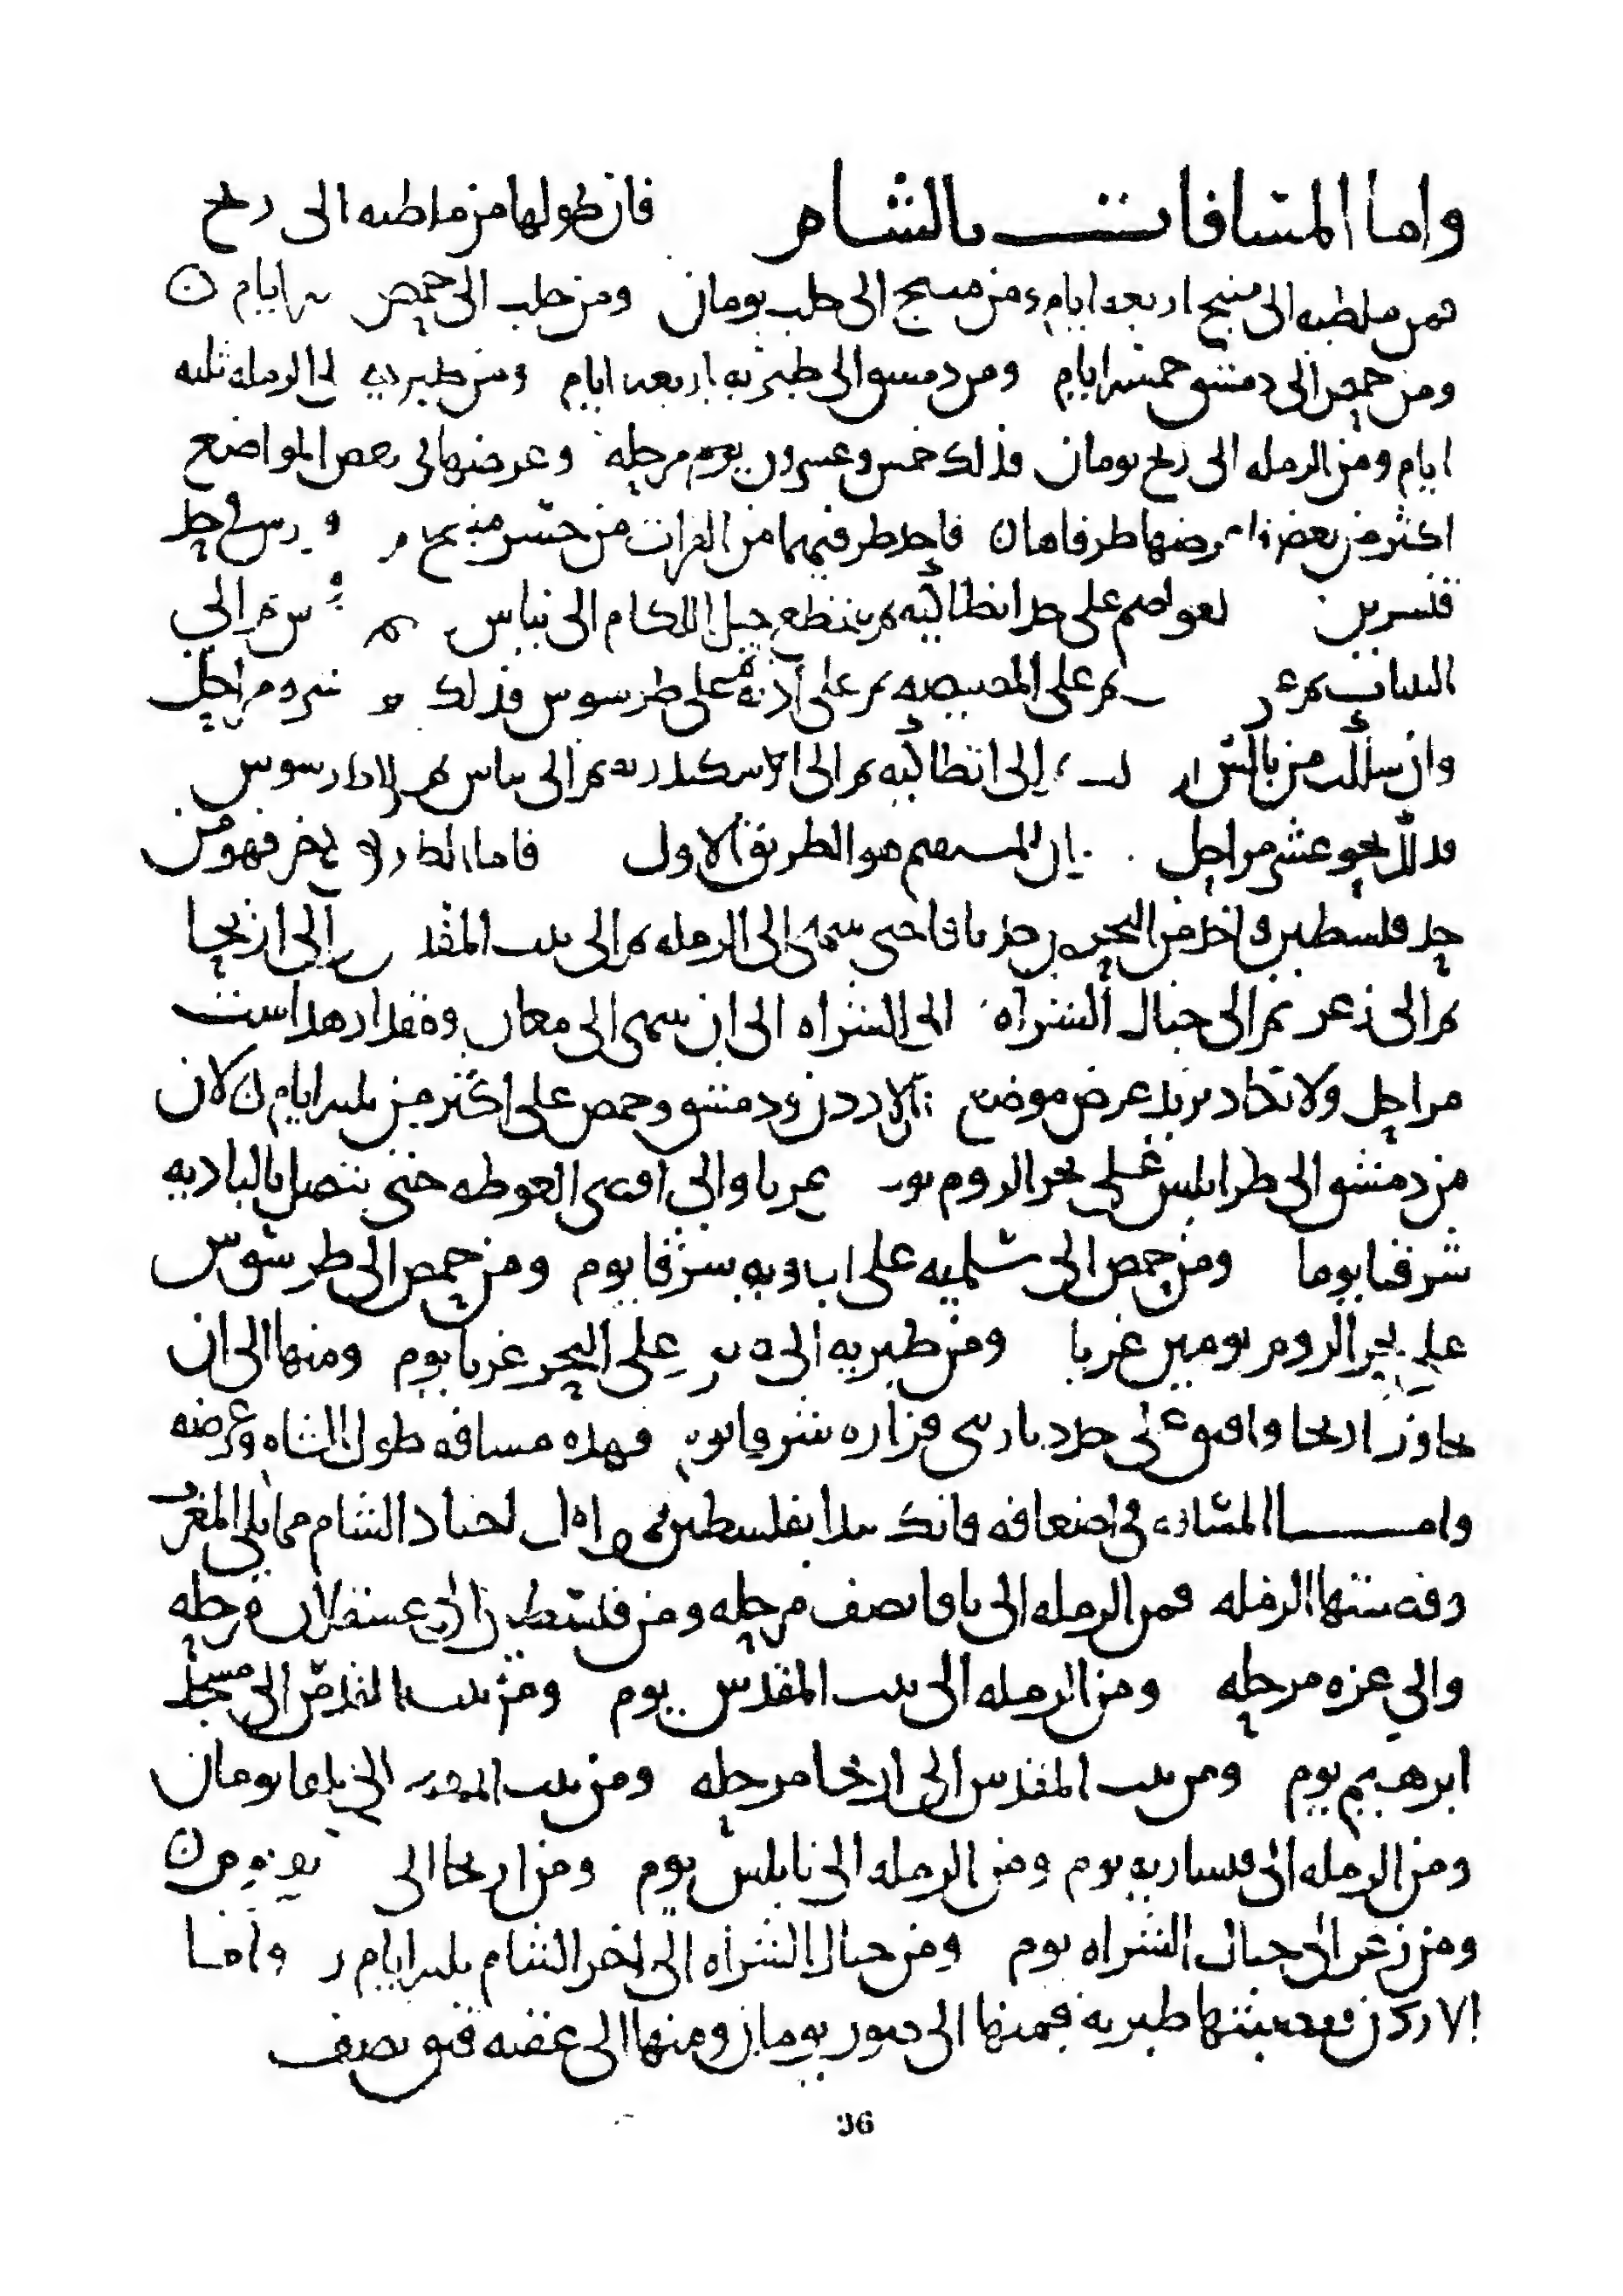 واما المسافات بالشام فان طولها من ملطيه الى رفح
فمن ملطيه الى منبج اربعه ايام ومن منبج الى حلب يومان ومن حلب الى حمص ايام
ومن حمص الى دمشق خمسه ايام ومن دمشق الى طبريه اربعه ايام ومن طبريه الى الرمله ثلثه
ايام ومن الرمله الى رفح يومان فذلك خمس وعشرون يوم مرحله وعرضها في بعض المواضع
اكثر من بعض طرفاها فان فاحد طرفيها من الفرات من جسر منبج حد
قنسرين العواصم على حد انطاكيه ثم ينقطع جبل اللكام الى بياس ثم الى
ثم على المصيصه ثم على اذنه ثم على طرسوس فذلك مراحل
وان سلكت من بالس الى انطاكيه ثم الى الاسكندريه ثم الى بياس
فذلك نحو عشر مراحل المستقيم هو الطريق الاول فاما فهو من
حد فلسطين واخذ من البحر من حد يافا حتى ينتهى الى الرمله ثم الى بيت المقدس الى اريحا
ثم الى زغر ثم الى جبال الشراه الى الشراه الى ان ينتهى الى معان ومقدار هذا ست
مراحل ولا تكاد تزيد عرض موضع الاردن ودمشق وحمص على اكثر من ثلثه ايام لان
من دمشق الى طرابلس على بحر الروم غربا والى اقصى الغوطه حتى يتصل بالباديه
شرقا يوما ومن حمص الى سلميه على الباديه شرقا يوم ومن حمص الى طرسوس
على بحر الروم يومين غربا ومن طبريه الى على البحر غربا يوم ومنها الى ان
يجاوز على حد ديار بنى فزاره شرقا يوم فهذه مسافه طول الشام وعرضه
واما المسافه في اضعافه فانك تبدا بفلسطين اول اجناد الشام مما يلى المغرب
وقصبتها الرمله فمن الرمله الى يافا نصف مرحله ومن فلسطين الى عسقلان مرحله
والى غزه مرحله ومن الرمله الى بيت المقدس يوم ومن بيت المقدس الى مسجد
ابرهيم يوم ومن بيت المقدس الى اريحا مرحله ومن بيت المقدس الى البلقا يومان
ومن الرمله الى قيساريه يوم ومن الرمله الى نابلس يوم ومن اريحا الى
ومن زغر الى جبال الشراه يوم ومن جبال الشراه الى اخر الشام ثلثه ايام واما
الاردن فقصبتها طبريه فمنها الى صور يومان ومنها الى عقبه فيق نصف
36